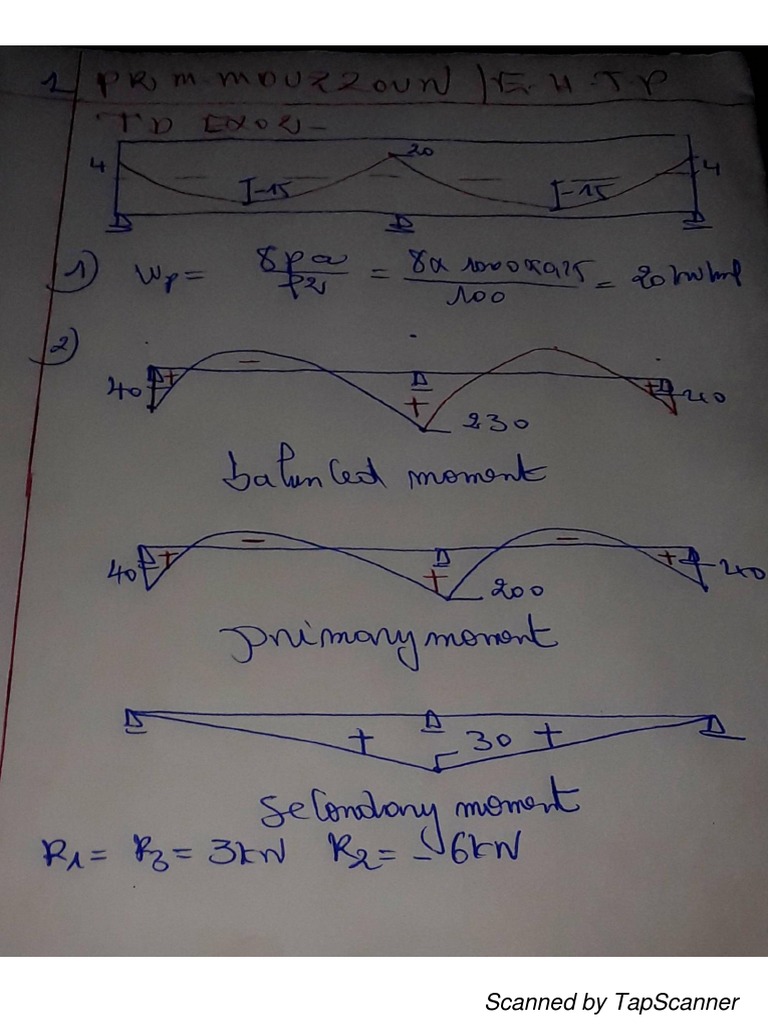 1 PR M-MOUZZOUN / E.N.T.P
TD EXO 2-
4 I-15 20 I-15 4
1) Wp = 8pa / l² = 8x 1000x0,25 / 100 = 20 kN/ml
2)
40 + - + 230 + 40
balanced moment
40 + - + 200 - + 40
primary moment
+ 30 +
secondary moment
R1 = R3 = 3kN R2 = -6kN
Scanned by TapScanner